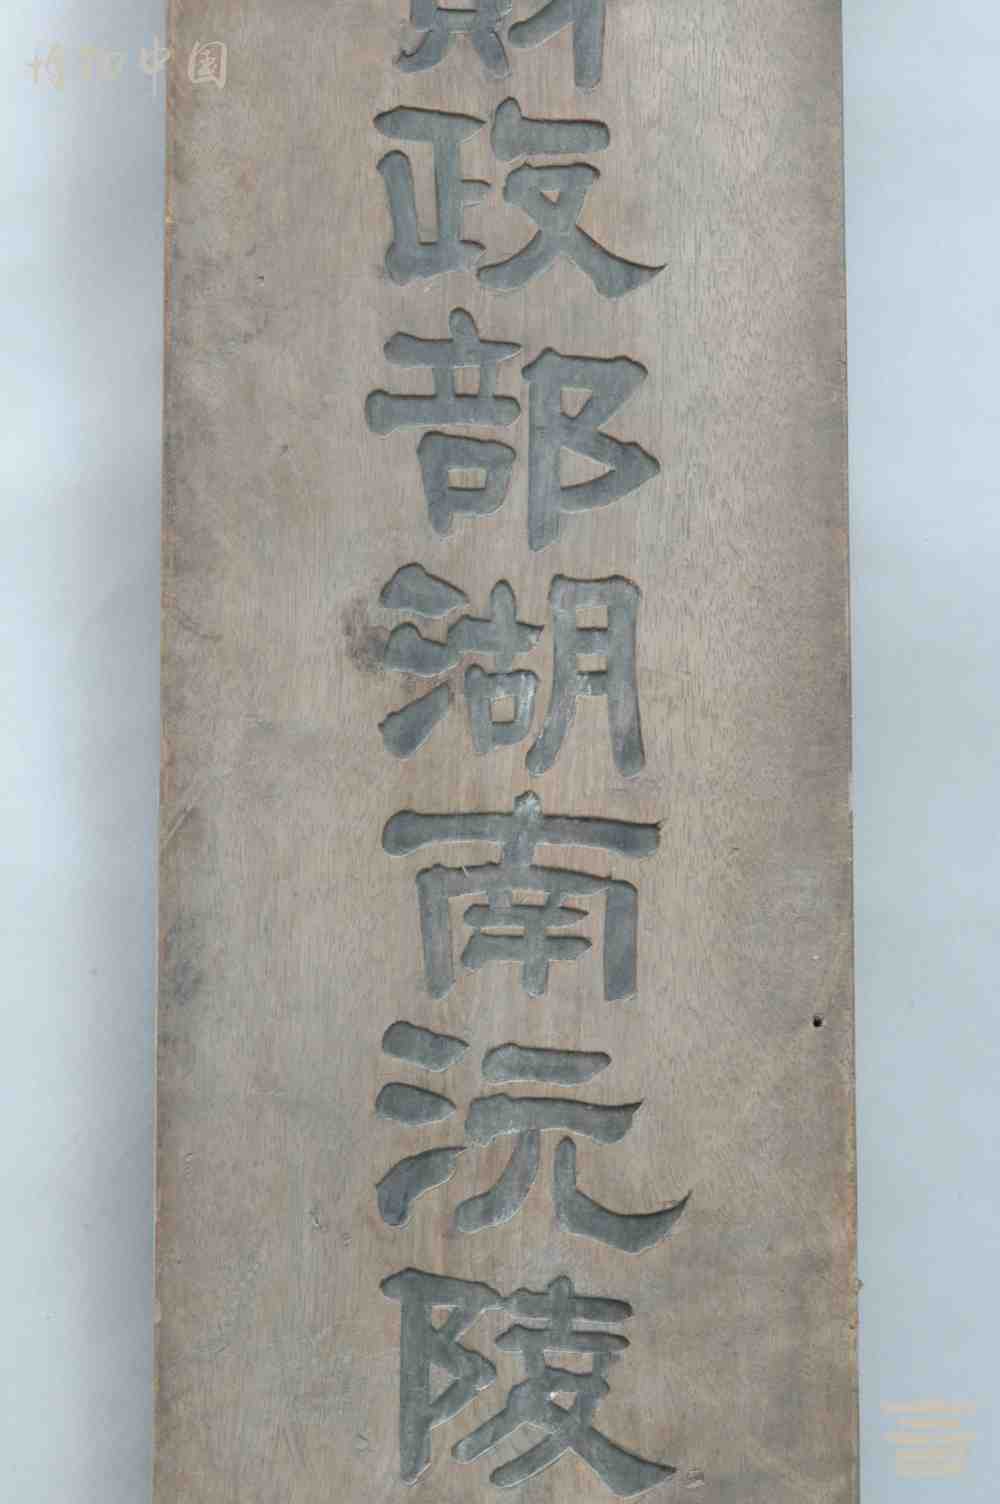 博物中国
財政部湖南沅陵